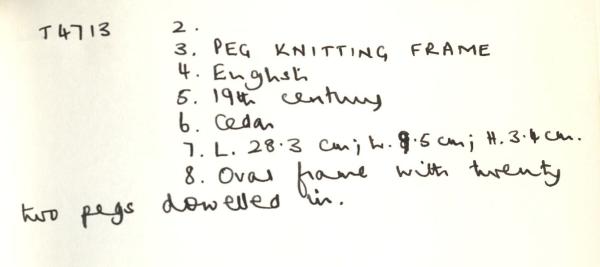 T4713 2.
3. PEG KNITTING FRAME
4. English
5. 19th century
6. Cedar
7. L. 28.3 cm; W. 9.5 cm; H. 3.4 cm.
8. Oval frame with twenty
two pegs dowelled in.